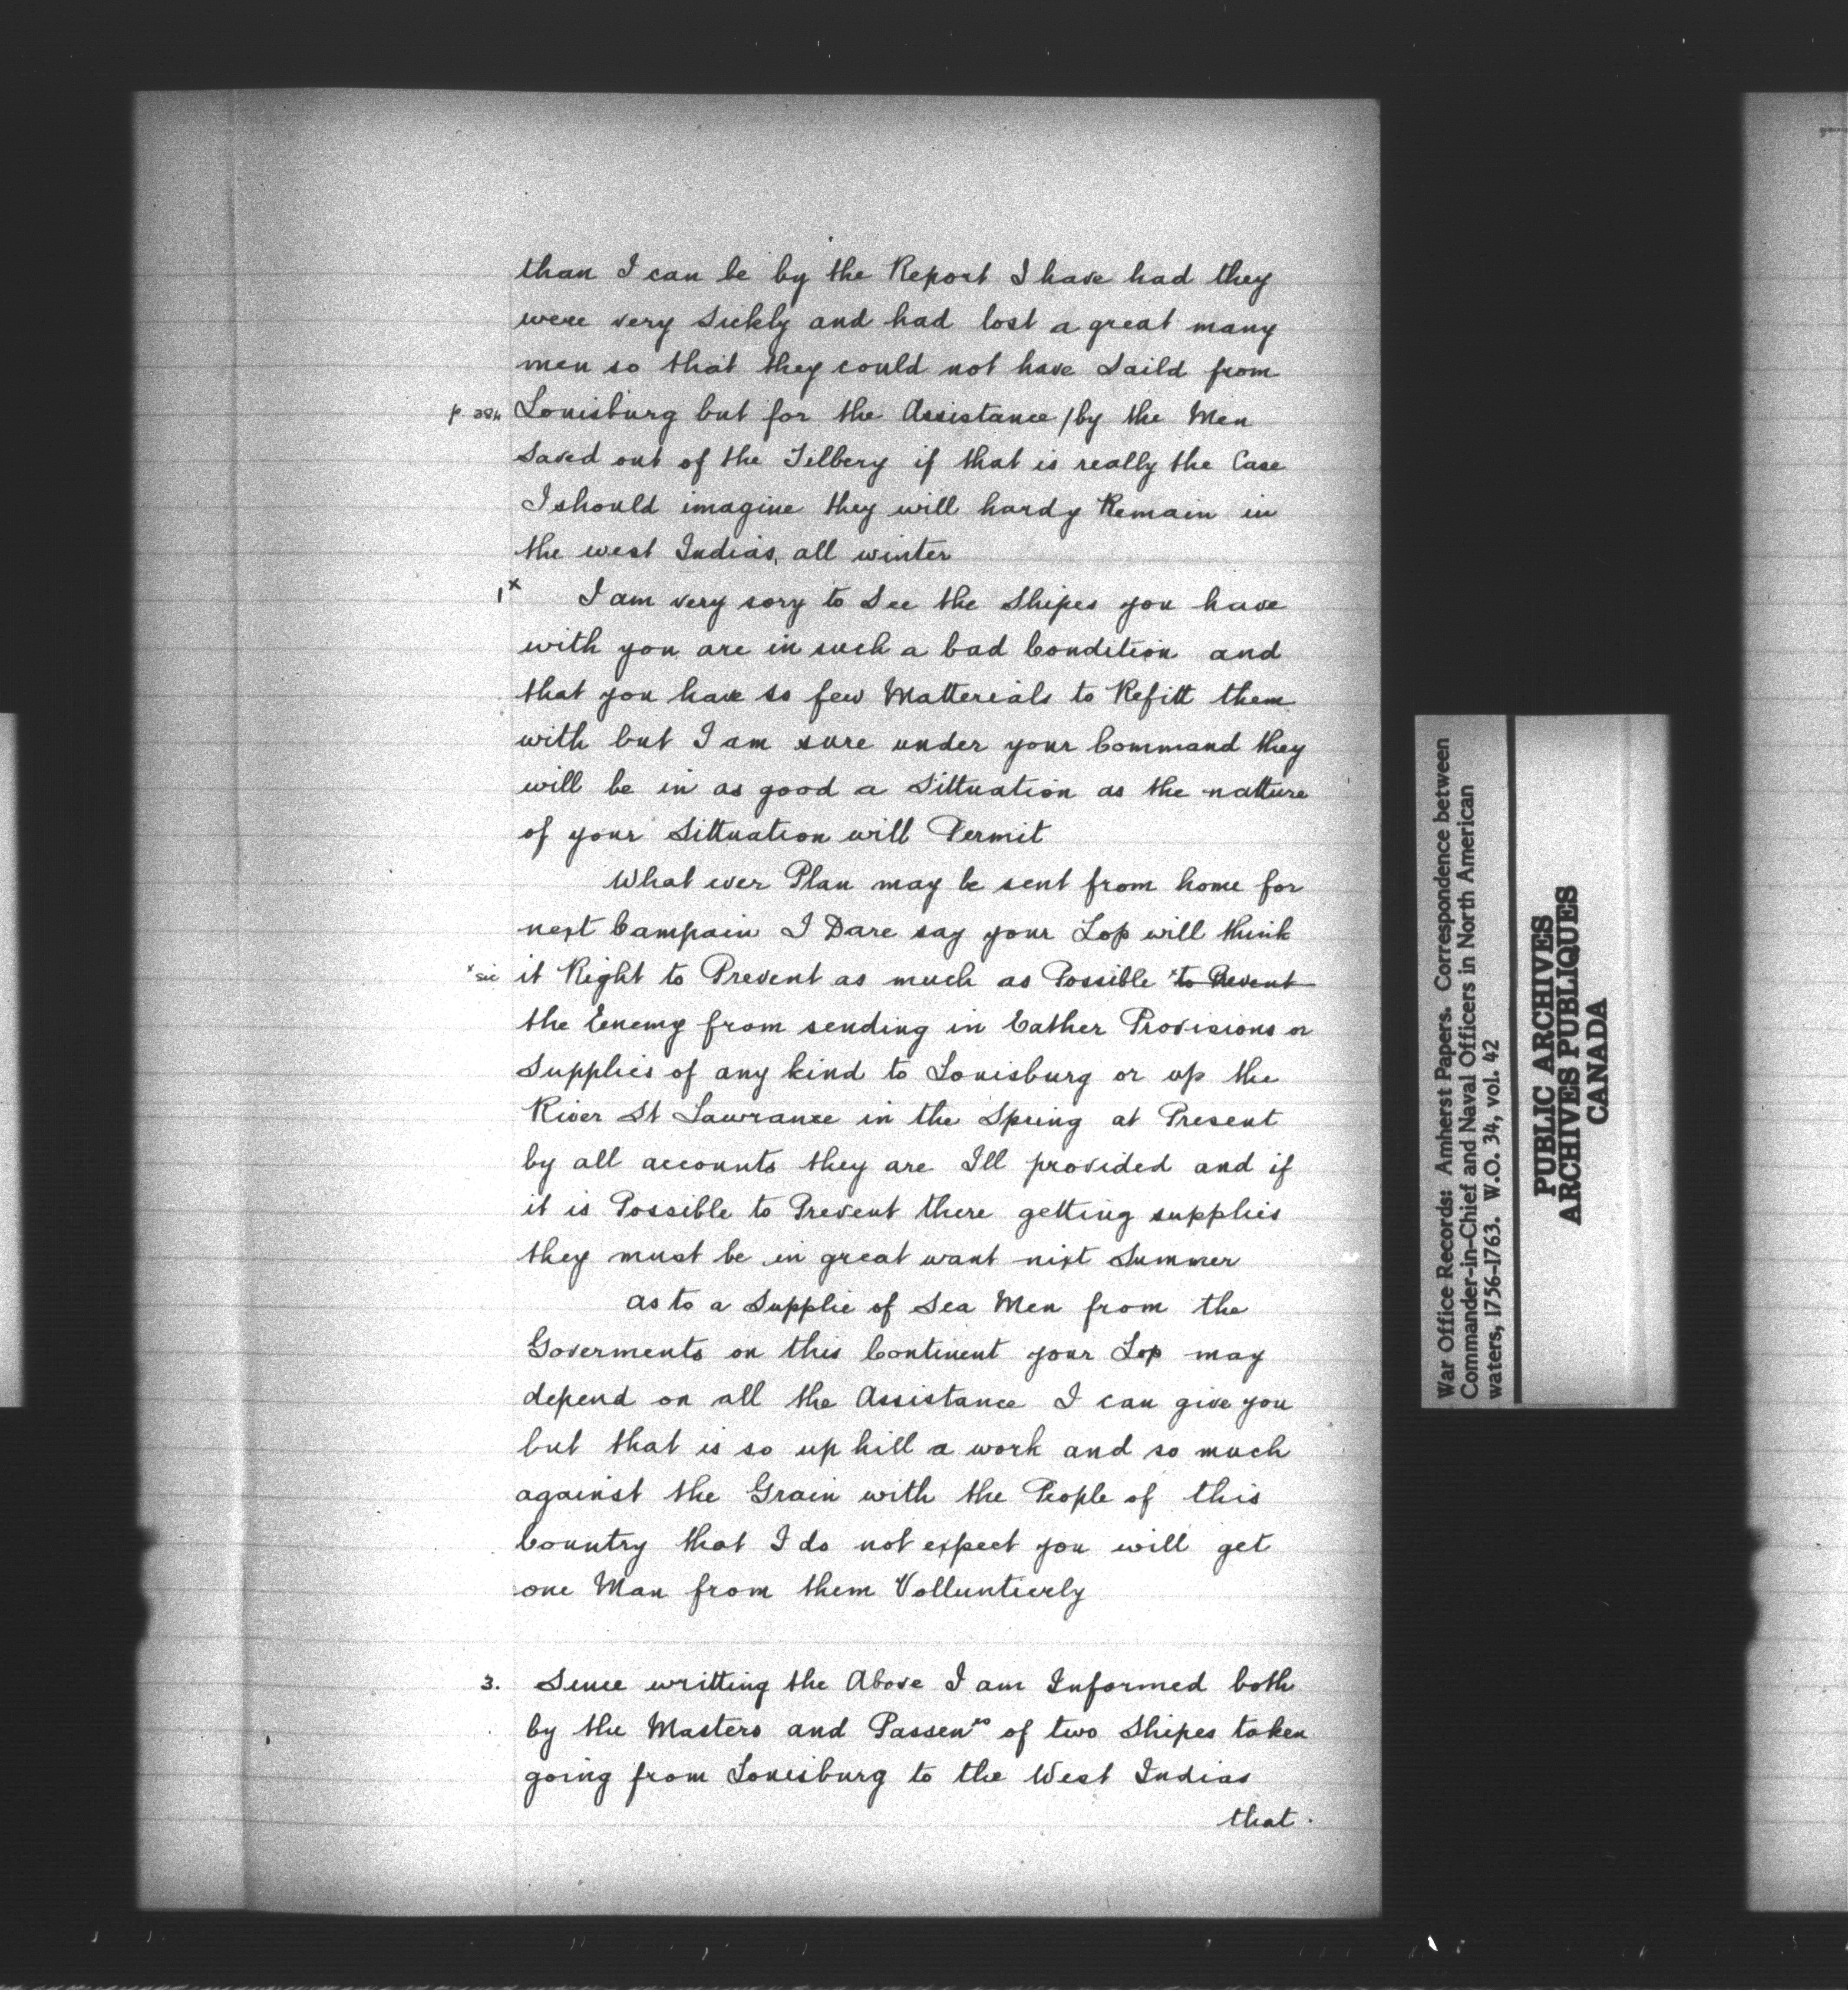 than I can be by the Report I have had they
were very Sickly and had lost a great many
men so that they could not have Saild from
p. 284 Louisburg but for the Assistance / by the Men
Saved out of the Tilbery if that is really the Case
I should imagine they will hardy Remain in
the west Indias, all winter
1x I am very sory to See the Shipes you have
with you are in such a bad Condition and
that you have so few Matterials to Refitt them
with but I am sure under your Command they
will be in as good a Sittuation as the natture
of your Sittuation will Permit
What ever Plan may be sent from home for
next Campain I Dare say your Lop will think
x sic it Right to Prevent as much as Possible x to Prevent
the Enemy from sending in Eather Provisions or
Supplies of any kind to Louisburg or up the
River St Lawrance in the Spring at Present
by all accounts they are Ill provided and if
it is Possible to Prevent there getting supplies
they must be in great want nixt Summer
as to a Supplie of Sea Men from the
Goverments on this Continent your Lop may
depend on all the Assistance I can give you
but that is so up hill a work and so much
against the Grain with the People of this
Country that I do not expect you will get
one Man from them Volluntierly
3. Sence writting the Above I am Informed both
by the Masters and Passenrs of two Shipes taken
going from Louisburg to the West Indias
that
War Office Records: Amherst Papers. Correspondence between
Commander-in-Chief and Naval Officers in North American
waters, 1756-1763. W.O. 34, vol. 42
PUBLIC ARCHIVES
ARCHIVES PUBLIQUES
CANADA